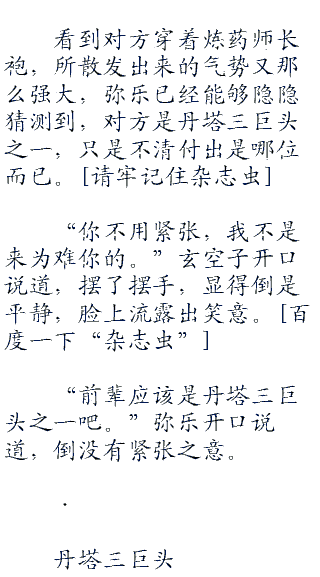 看到对方穿着炼药师长
袍，所散发出来的气势又那
么强大，弥乐已经能够隐隐
猜测到，对方是丹塔三巨头
之一，只是不清付出是哪位
而已。[请牢记住杂志虫]
“你不用紧张，我不是
来为难你的。”玄空子开口
说道，摆了摆手，显得倒是
平静，脸上流露出笑意。[百
度一下“杂志虫”]
“前辈应该是丹塔三巨
头之一吧。”弥乐开口说
道，倒没有紧张之意。
.
丹塔三巨头